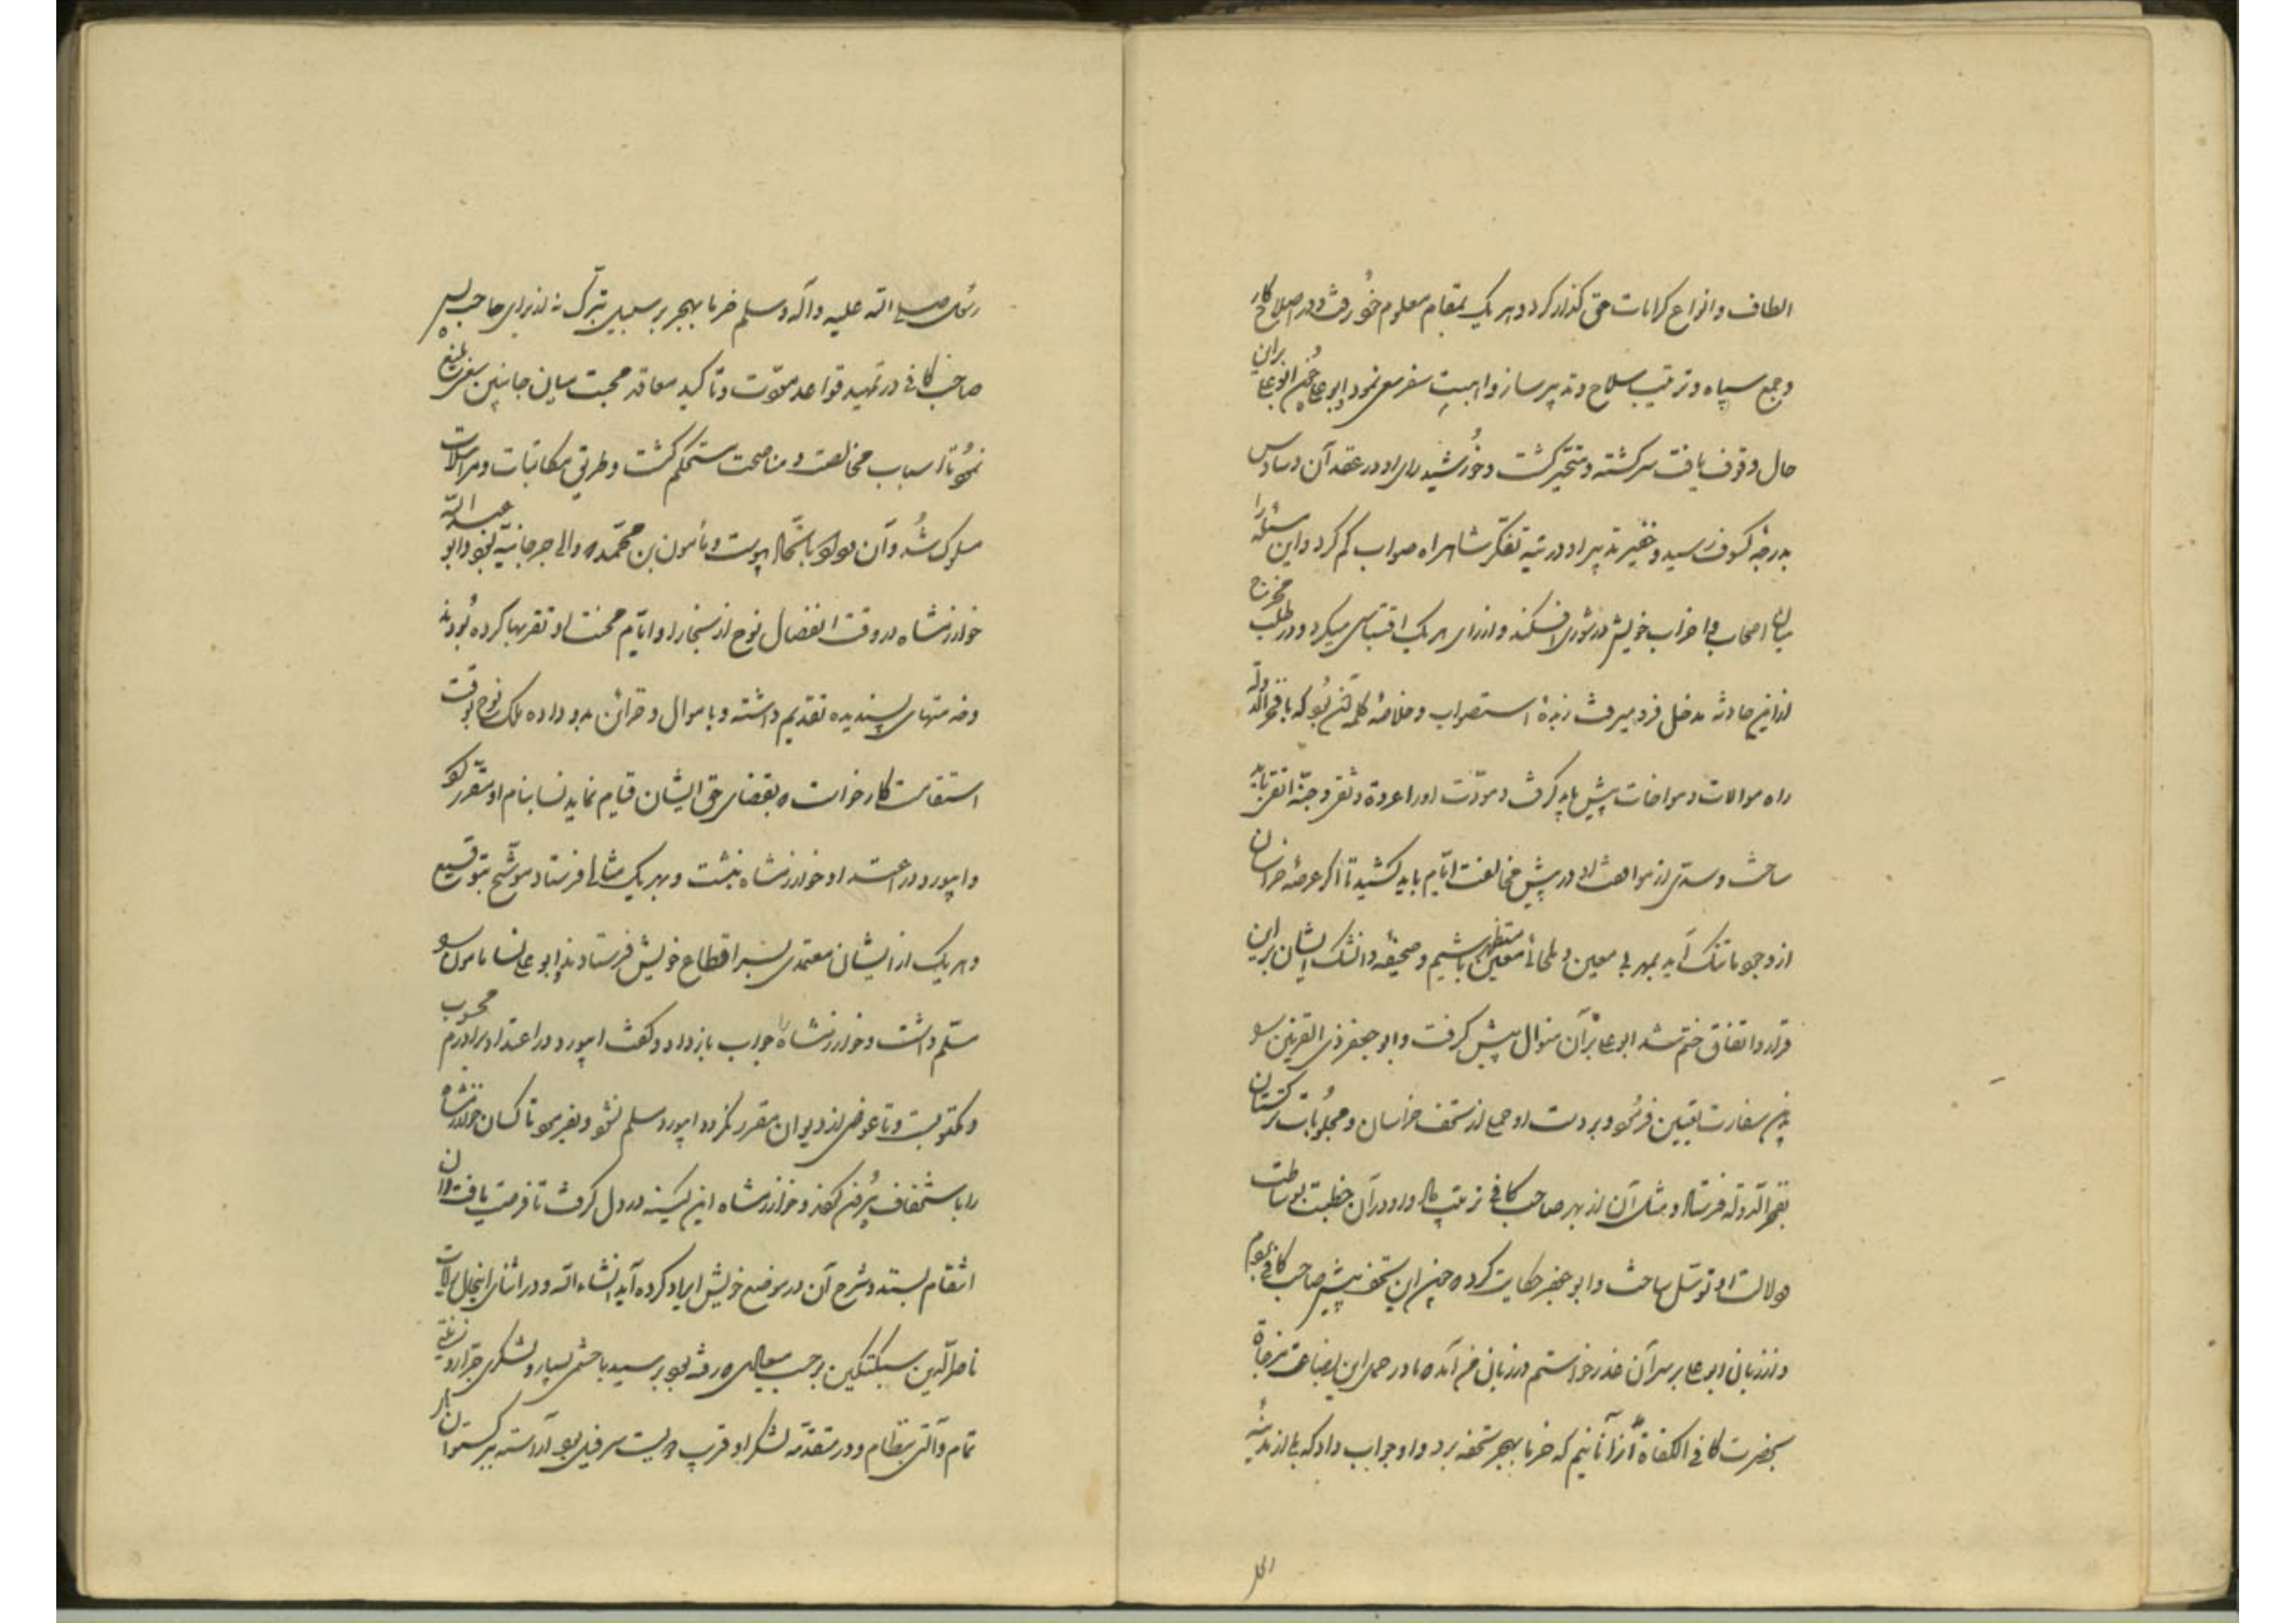 الطاف و انواع کرامات حق گذارکرد و هر یک بمقام معلوم خود رفت و در اصلاح کار
و جمع سپاه و ترتیب سلاح و تدبیر ساز و اهبت سفر سعی نمود و ابوعلی چون ابوعلی بران
حال وقوف یافت سرکشته و متحیر کشت و خورشید رای او در عقد آن وساوس
بدرجه کسوف رسید و خفیر تدبیر او در تیه تفکر شاهراه صواب کم کرد و این مسئله را
میان اصحاب و احزاب خویش در شوری افکند و از رای هر یک اقتباسی میکرد و در طلب مخرج
ازین حادثه مدخل فرو میرفت زبدهٔ استصواب و خلاصهٔ کلمه آن بود که با فخرالدوله
راه موالات و مواخات پیش باید کرفت و مودت او را عروة وثقی و جنة اتقی باید
ساخت و سدی از موافقت او در پیش مخالفت ایام باید کشید تا اکر عرصه خراسان
از وجود ما تنک آید بمهربی معین و ملجائی معین مستظهر باشیم و صحیفه دانش ایشان برین
قرار و اتفاق ختم شد ابوعلی بران منوال پیش کرفت و ابو جعفر ذی القرنین سو
بدین سفارت تعیین فرمود و بردست او جمعی از تحف خراسان و مجلوبات ترکستان
بفخرالدوله فرستاد و مثل آن از بهر صاحب کافی ترتیب داد و در آن خطبت بوساطت
و دلالت او توسل ساخت و ابو جعفر حکایت کرد که چون این تحف پیش صاحب کافی بردم
و از زبان ابوعلی بر سر آن عذر خواستم و بر زبان من آمد که ما در حمل این بضاعت مزجاة
بحضرت کافی الکفاة از آنانیم که خرما بهجر تحفه برد و او جواب داد که بلی از مدینهٔ
رسول صلی الله علیه و آله و سلم خرما بهجر بر سبیل تبرک نه از برای حاجت پس
صاحب کافی در تمهید قواعد مودت و تاکید معاقد محبت میان جانبین سعی بلیغ
نمود تا اسباب مخالصت و مناصحت مستحکم کشت و طریق مکاتبات و مراسلات
مسلوک شد و آن دولو باشحال پیوست و مأمون بن محمد که والی جرجانیه بود و ابو عبدالله
خوارزمشاه در وقت انفصال نوح از بخارا و ایام محنت او تقربها کرده بودند
و خدمتهای پسندیده تقدیم داشته و باموال و خزائن مدد داده ملک نوح بوقت
استقامت کار خواست که بقضای حق ایشان قیام نماید نسا بنام او مقرر کرد
و ابیورد در اعتداد خوارزمشاه نبشت و بهر یک مثالی فرستاد موشح بتوقیع
و هر یک از ایشان معتمدی بسر اقطاع خویش فرستادند ابوعلی نسا بامون سو
مسلم داشت و خوارزمشاه را جواب باز داد و کفت ابیورد در اعتداد برادرم محسوب
و مکتوبست و تا عوض از دیوان مقرر نکردد ابیورد مسلم نشود و بفرمود تا کسان خوارزمشاه
را باستخفاف بیرون کنند و خوارزمشاه این کینه در دل کرفت تا فرصت یافت و ان
انتقام بستد و شرح آن در موضع خویش ایراد کرده آید انشاءالله و در اثنای اینحال ولات
ناصرالدین سبکتکین برحسب میعادی که رفته بود برسید با حشمی بسیار و لشکری جرار و زینتی
تمام و آلتی بنظام و در مقدمه لشکر او قرب دویست سر فیل بود آراسته ببرکستوان